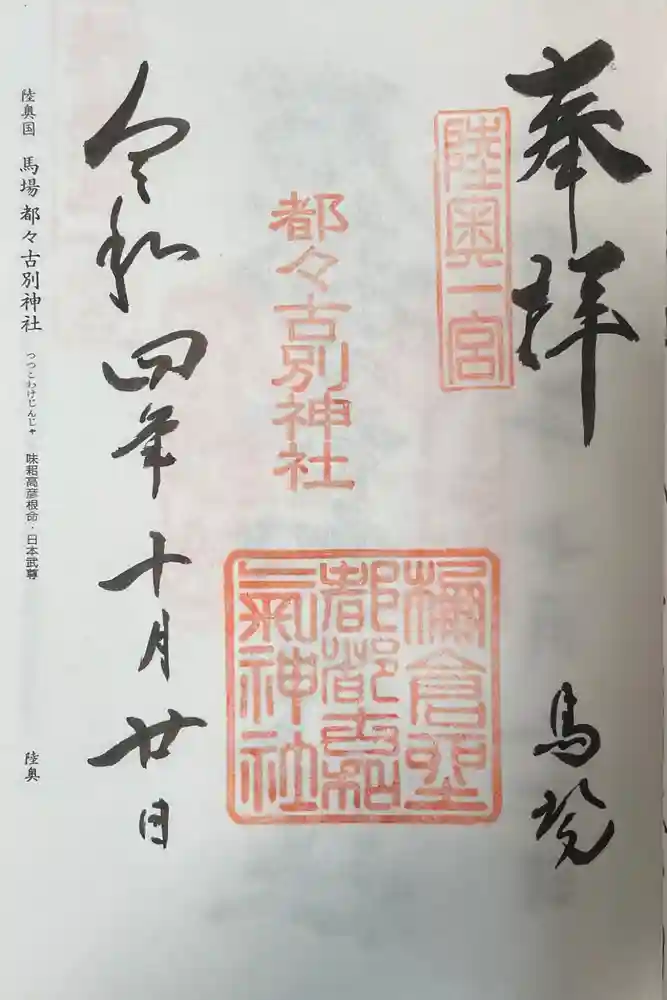 奉拝
馬場
陸奥一宮
都々古別神社
倉
都都古和
氣神社
令和四年十月廿日
陸奥国 馬場 都々古別神社 つつこわけじんじゃ 味耜高彦根命・日本武尊 陸奥